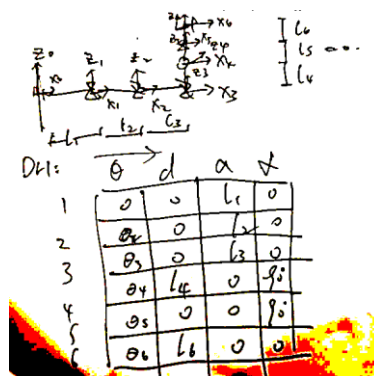 z₆ x₆
z₅ x₅ z₄
x₄
z₃
l₆
l₅
l₄
z₀ z₁ z₂
x₀ x₁ x₂ x₃
l₁ l₂ l₃
DH: θ d a α
1 0 0 l₁ 0
2 θ₂ 0 l₂ 0
3 θ₃ 0 l₃ 0
4 θ₄ l₄ 0 90
5 θ₅ 0 0 90
6 θ₆ l₆ 0 0